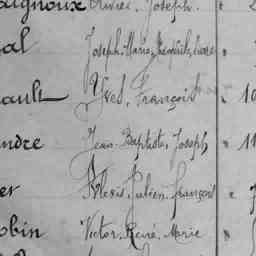 aignoux Aimée, Joseph. 2
al Joseph, Marie,
ault Yves, François " 10
ndre Jean-Baptiste, Joseph, " 11
er Alexis, Julien, François " 7
obin Victor, René, Marie "